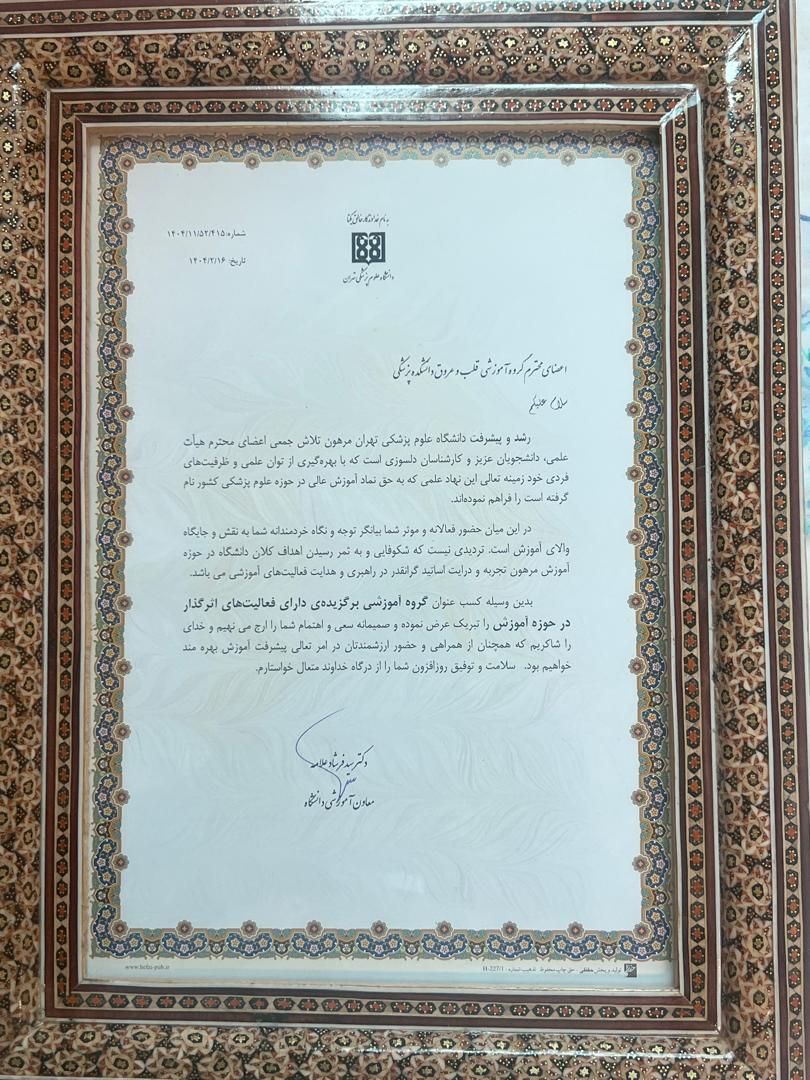 به نام خداوندگار خالق یکتا
شماره: ۱۴۰۴/۱۱/۵۲/۴۱۵
تاریخ: ۱۴۰۴/۲/۱۶
دانشگاه علوم پزشکی تهران
اعضای محترم گروه آموزشی قلب و عروق دانشکده پزشکی
سلام علیکم
رشد و پیشرفت دانشگاه علوم پزشکی تهران مرهون تلاش جمعی اعضای محترم هیأت
علمی، دانشجویان عزیز و کارشناسان دلسوزی است که با بهره‌گیری از توان علمی و ظرفیت‌های
فردی خود زمینه تعالی این نهاد علمی که به حق نماد آموزش عالی در حوزه علوم پزشکی کشور نام
گرفته است را فراهم نموده‌اند.
در این میان حضور فعالانه و موثر شما بیانگر توجه و نگاه خردمندانه شما به نقش و جایگاه
والای آموزش است. تردیدی نیست که شکوفایی و به ثمر رسیدن اهداف کلان دانشگاه در حوزه
آموزش مرهون تجربه و درایت اساتید گرانقدر در راهبری و هدایت فعالیت‌های آموزشی می باشد.
بدین وسیله کسب عنوان گروه آموزشی برگزیده‌ی دارای فعالیت‌های اثرگذار
در حوزه آموزش را تبریک عرض نموده و صمیمانه سعی و اهتمام شما را ارج می نهیم و خدای
را شاکریم که همچنان از همراهی و حضور ارزشمندتان در امر تعالی پیشرفت آموزش بهره مند
خواهیم بود. سلامت و توفیق روزافزون شما را از درگاه خداوند متعال خواستارم.
دکتر سید فرشاد علامه
معاون آموزشی دانشگاه
تولید و پخش حفظی - حق چاپ محفوظ تذهیب شماره : H-227/1
www.hefzi-pub.ir